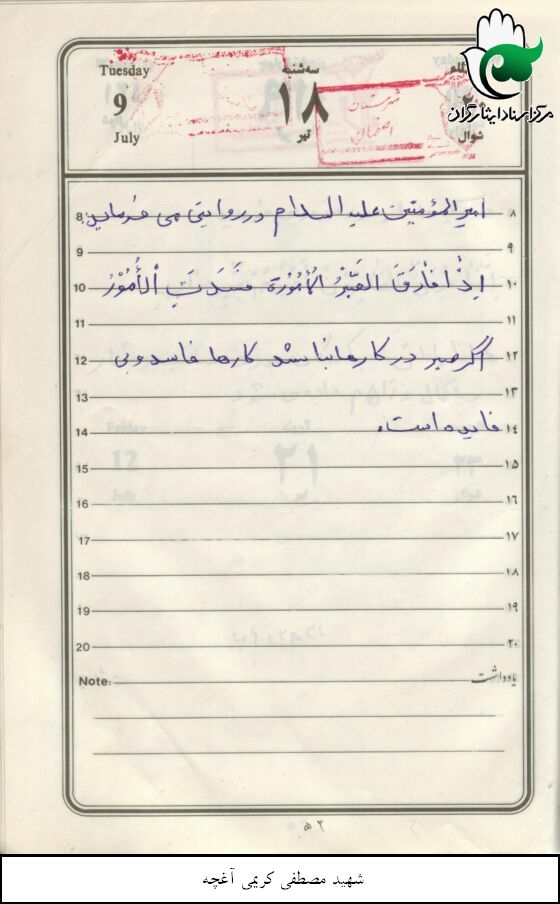 مرکز اسناد ایثارگران
Tuesday
9
July
سه‌شنبه
۱۸
تیر
شوال
شهرستان
اصفهان
امیر المؤمنین علیه السلام در روایتی می فرماید:
اِذْا فٰارَقَ الصَّبْرُ الْاُمُوْرَة فَسَدَتِ اْلأُمُوْرُ
اگر صبر در کارها نباشد کارها فاسد و بی
فایده است.
8 ۸
9 ۹
10 ۱۰
11 ۱۱
12 ۱۲
13 ۱۳
14 ۱۴
15 ۱۵
16 ۱۶
17 ۱۷
18 ۱۸
19 ۱۹
20 ۲۰
Note: یادداشت
۵۲
شهید مصطفی کریمی آغچه